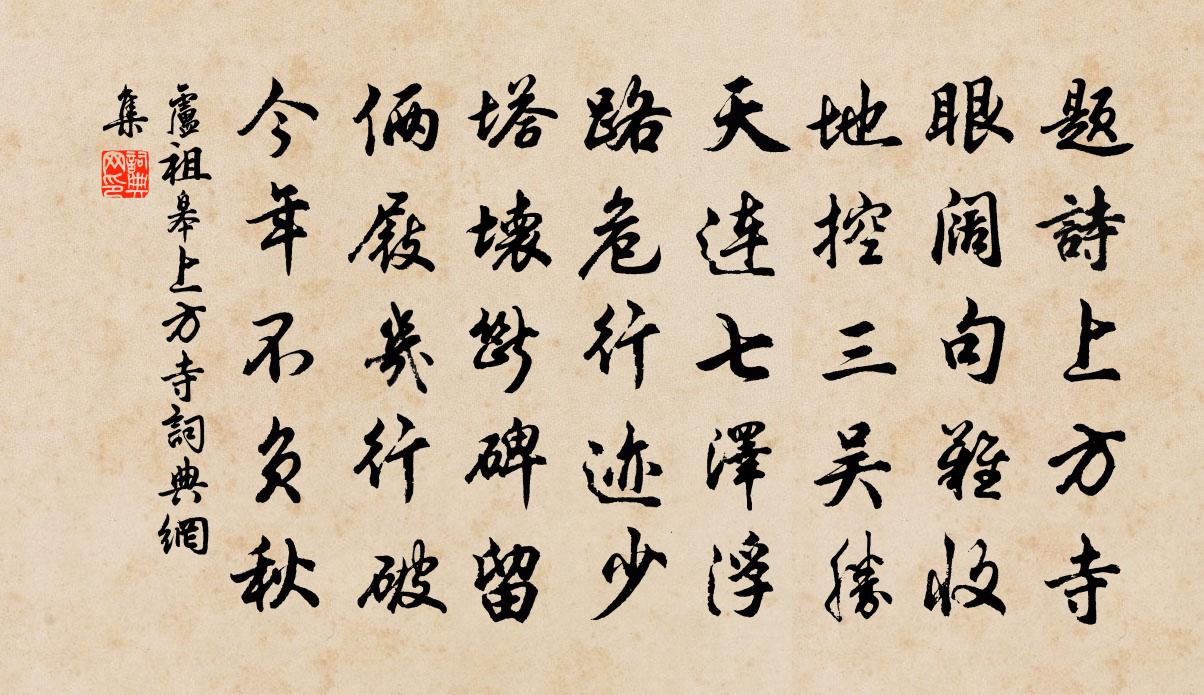 題詩上方寺
眼阔句難收
地控三吴勝
天連七澤浮
路危行迹少
塔壞斷碑留
倆屐幾行破
今年不负秋
盧祖皋上方寺詞典網
集
詞典
网印